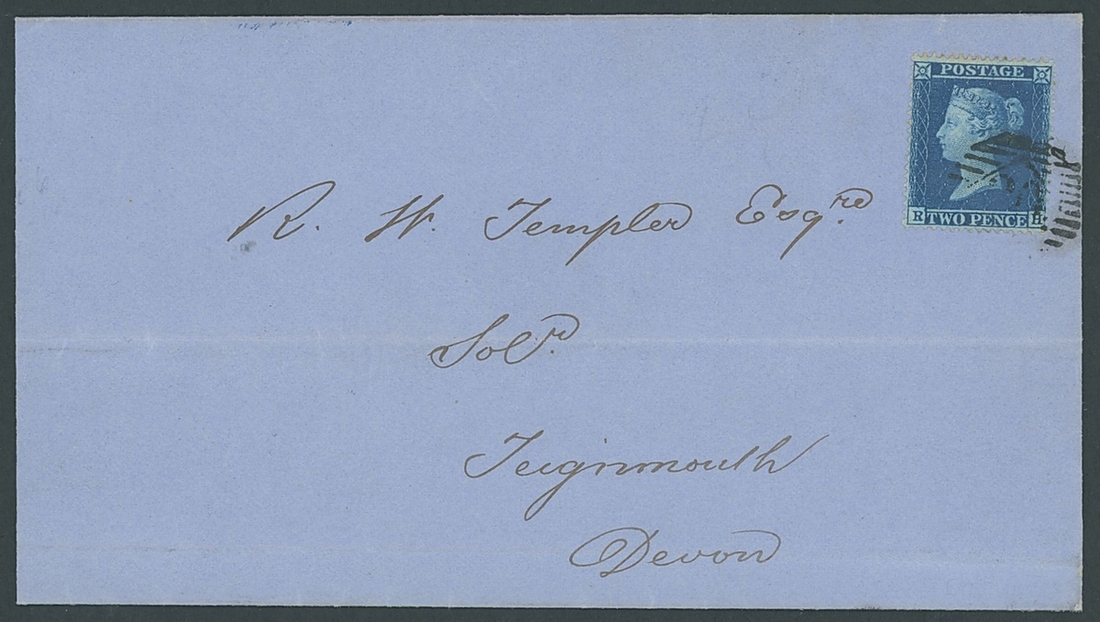 POSTAGE
R TWO PENCE H
R. W. Templer Esqre
Solr.
Teignmouth
Devon